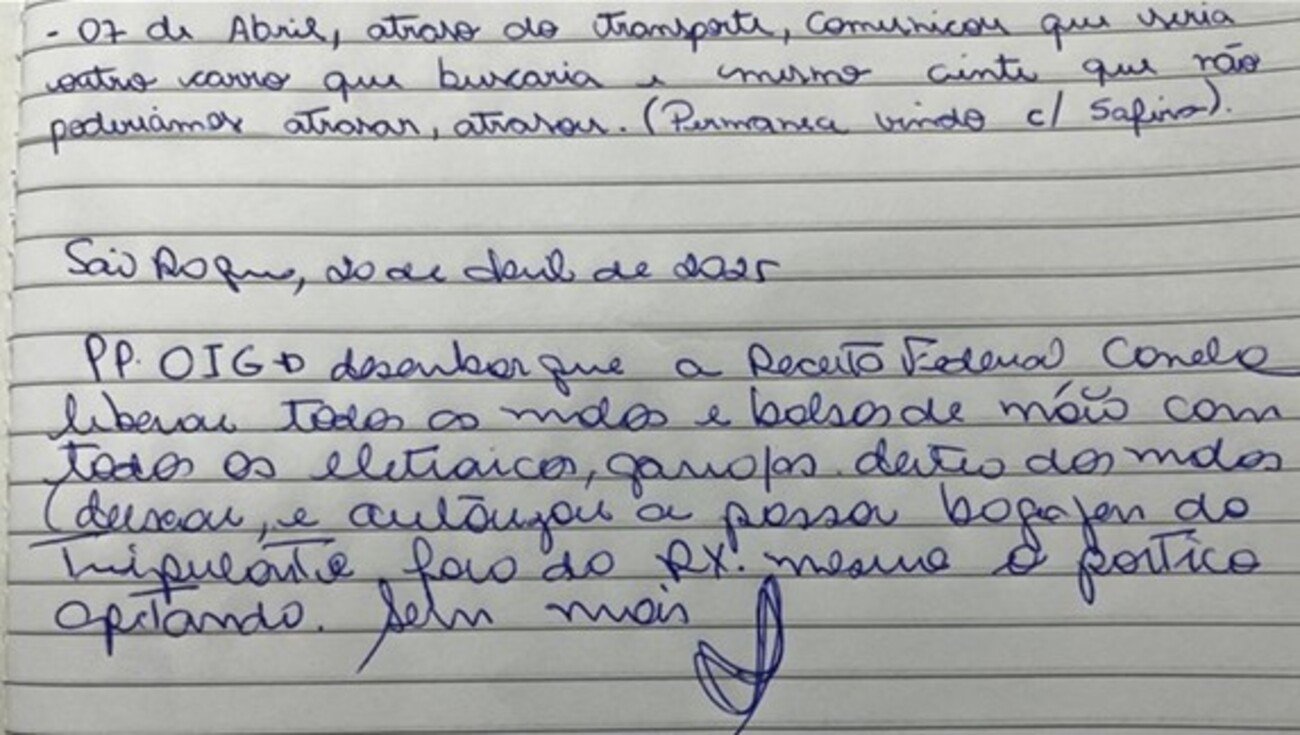 - 07 de Abril, atraso do transporte, comunicou que seria
outro carro que buscaria e mesmo ciente que não
poderiamos atrasar, atrasou. (Permanea vindo c/ Safira).
São Roque, 20 de Abril de 2025
PP. OIGD desenbarque a Receita Federal Conela
liberou todos os malas e bolsas de mão com
todos os eletraicos, garrafas dentro das malas
(deixou, e autorizou a passar bogajen do
tripulante fora do RX. mesmo o portico
apitando. Sem mais